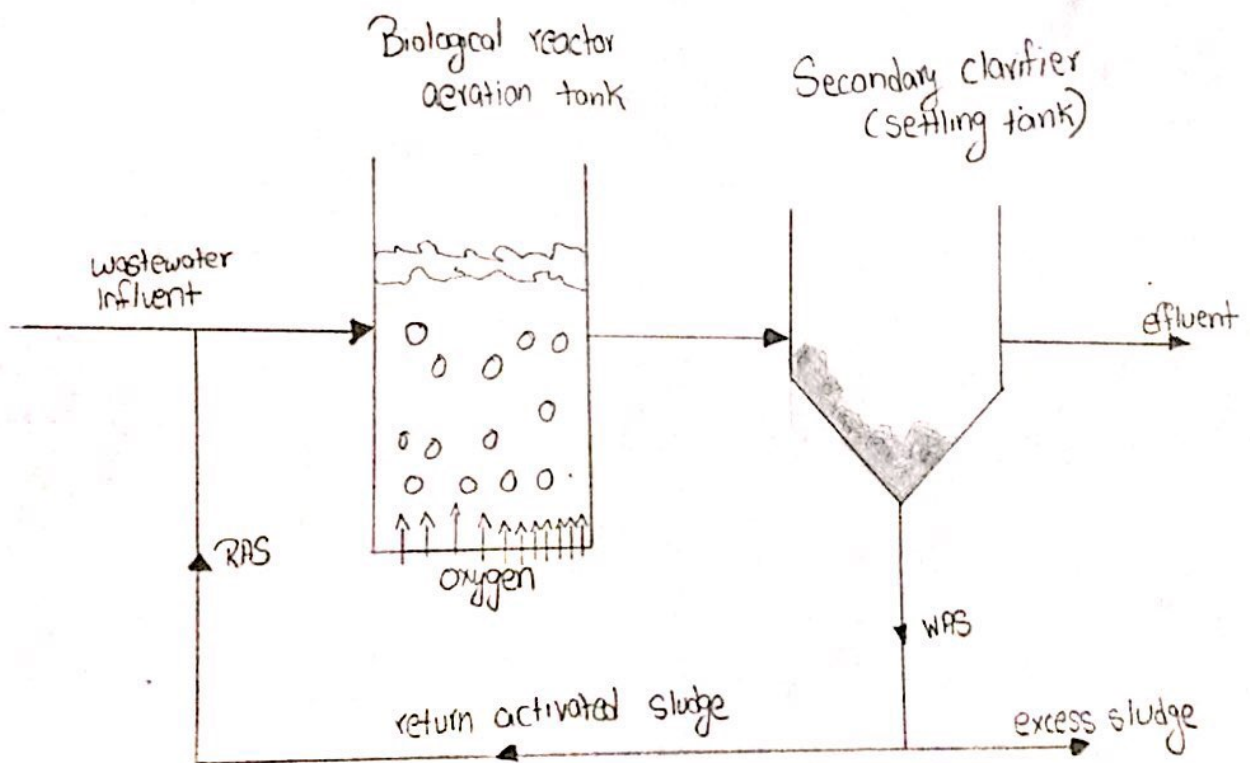 Biological reactor
aeration tank
Secondary clarifier
(settling tank)
wastewater
influent
effluent
oxygen
RAS
WAS
return activated sludge
excess sludge